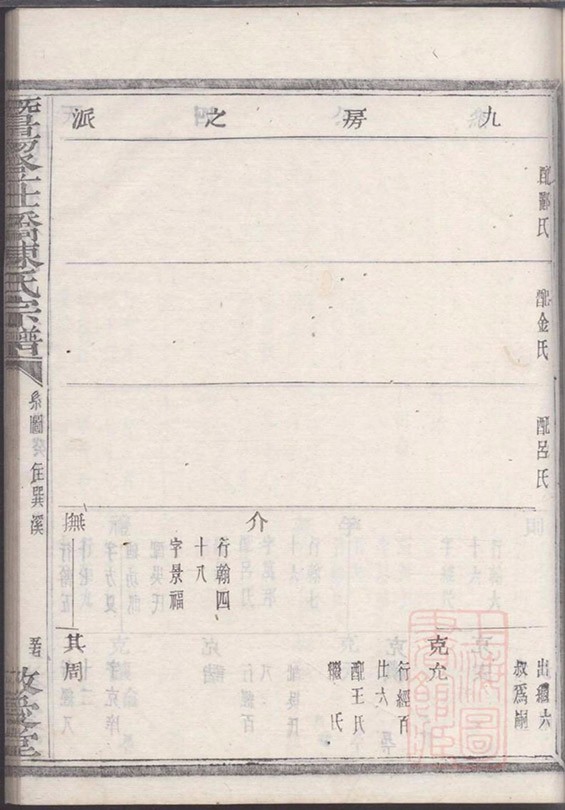 九房之派
配酈氏
配金氏
配呂氏
介
行翰四
十八
字景福
撫
出繼六
叔爲嗣
克允
行經百
廿六
配王氏
繼 氏
其周
橋陳氏宗譜
系圖
住巽溪